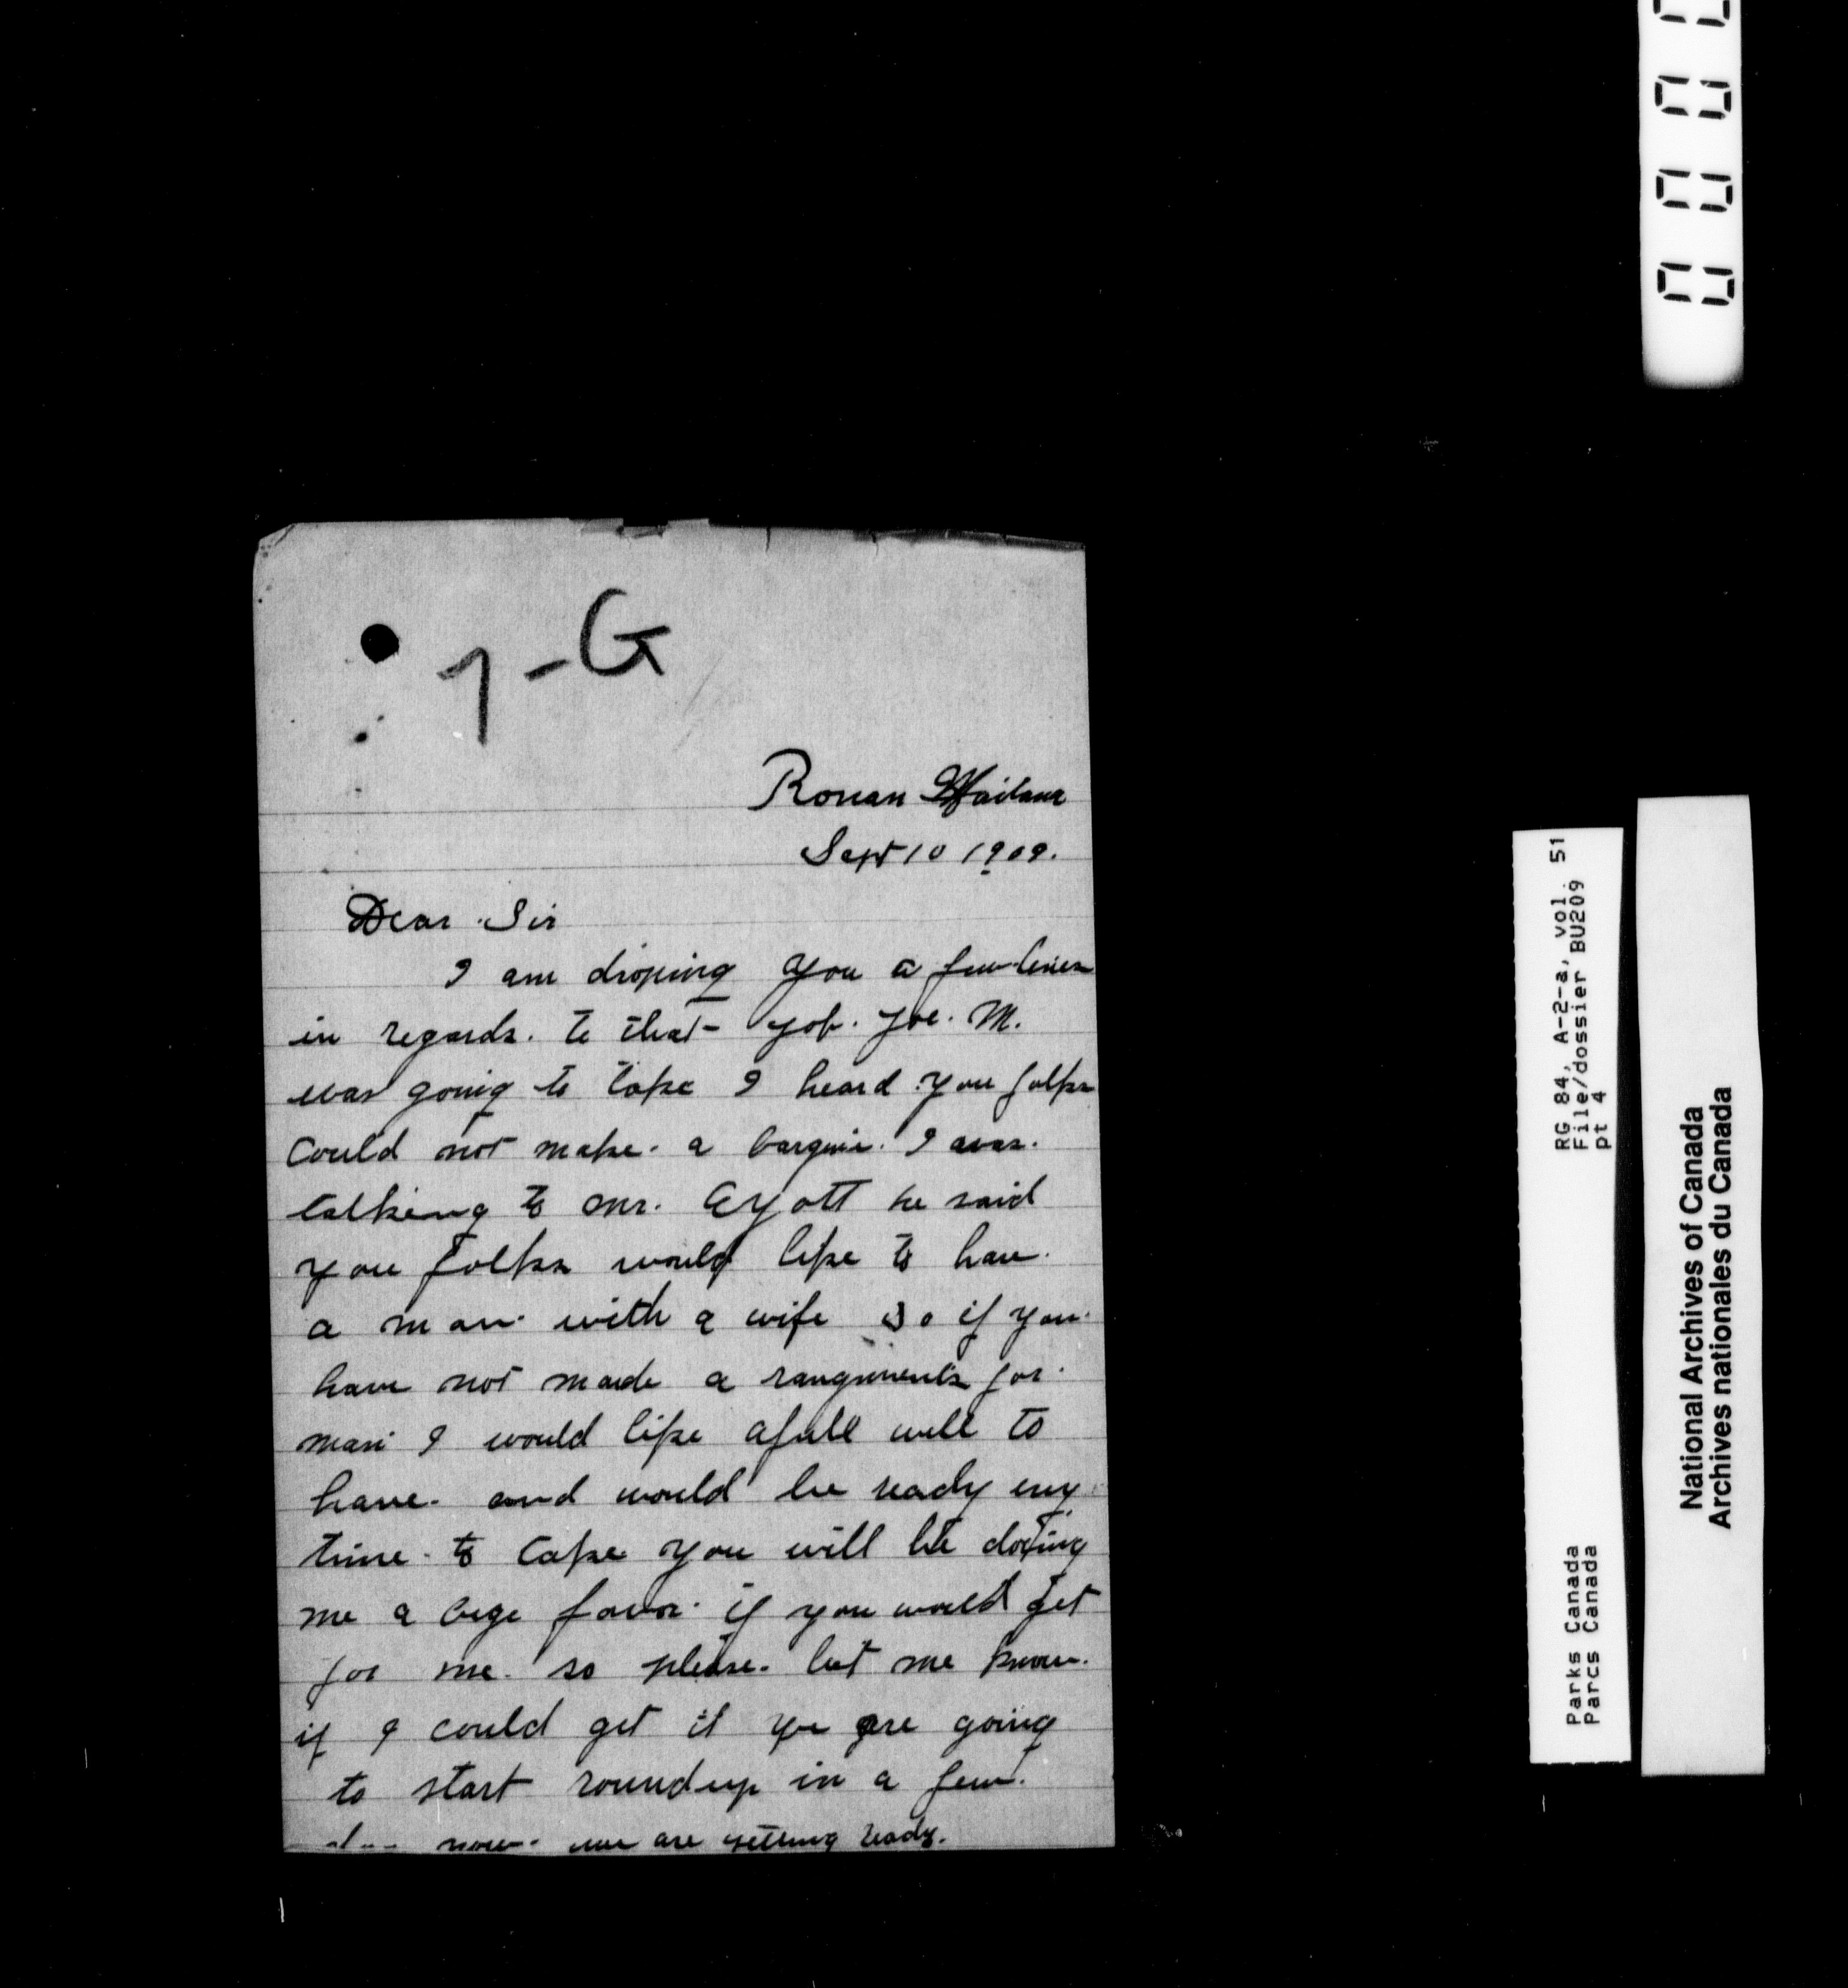 7-G
Ronan
Sept 10 1909.
Dear Sir
I am droping you a few lines
in regards. to that yob. Joe. M.
was going to take I heard you folks
Could not make. a bargin. I was.
talking to mr. Ayott he said
you folks would like to have.
a man. with a wife so if you
have not made a rangments for
man I would like afull well to
have. and would be ready eny
time. to take you will be doing
me a bige favor. if you would get
for me. so please. let me know.
if I could get it are going
to start roundup in a few.
now. we are getting ready.
RG 84, A-2-a, vol. 51
File/dossier BU209
pt 4
Parks Canada
Parcs Canada
National Archives of Canada
Archives nationales du Canada